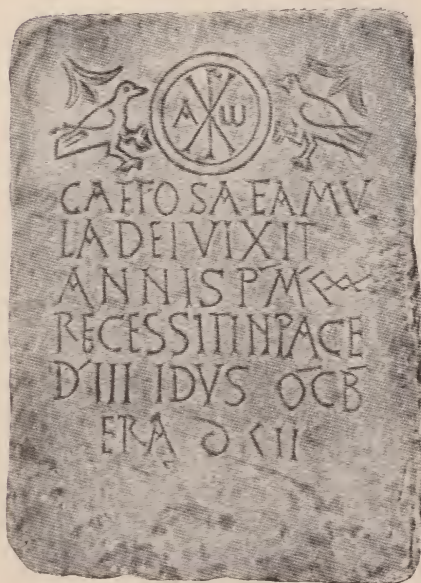 Α ω
CAETOSA EAMV
LA DEI VIXIT
ANNIS PM
RECESSIT IN PACE
D III IDVS OCB
ERA